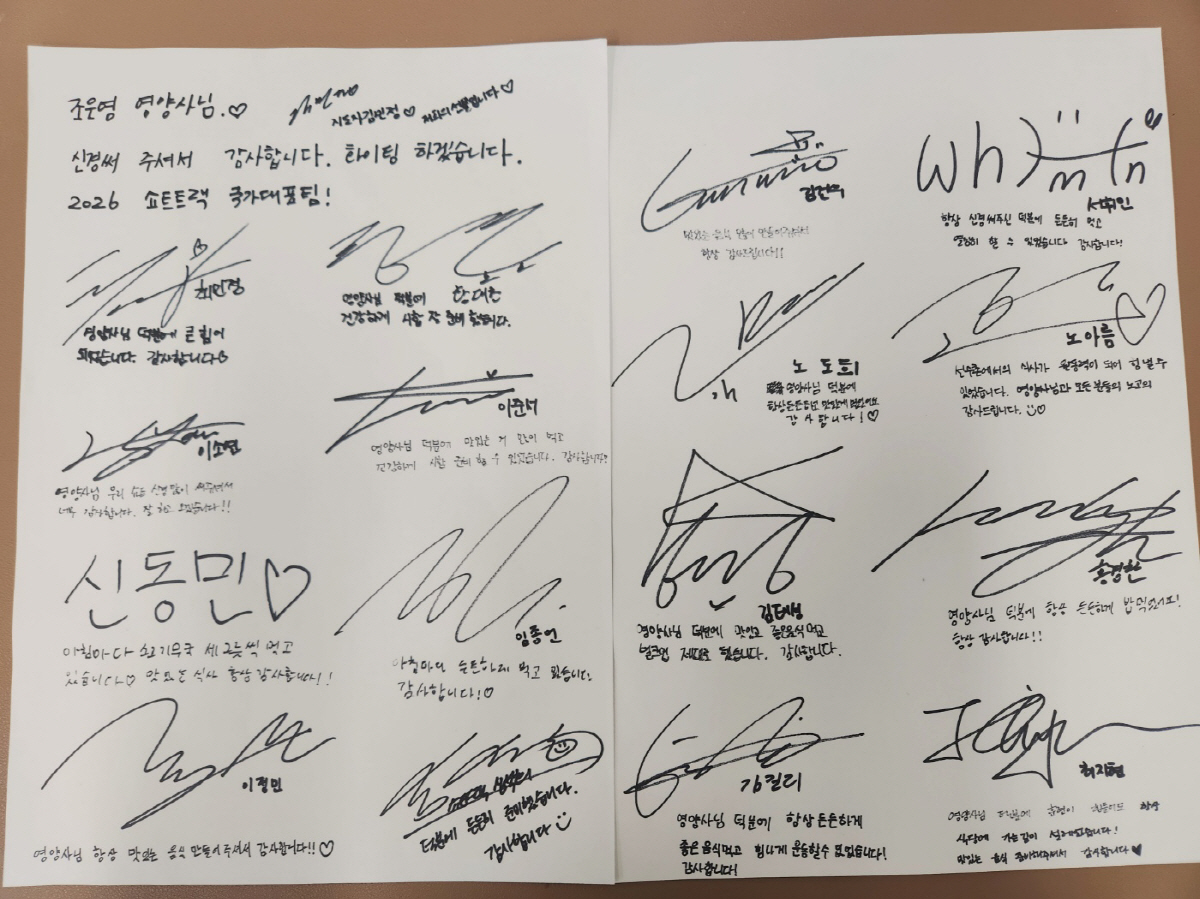 조운영 영양사님.♡
지도자김민정♡
신경써 주셔서 감사합니다. 화이팅 하겠습니다.
2026 쇼트트랙 국가대표팀!
최민정
영양사님 덕분에 큰힘이
되었습니다. 감사합니다♡
영양사님 덕분에
건강하게 시합 잘 준비 했습니다.
이소연
영양사님 우리 신경많이 써주셔서
너무 감사합니다. 잘 하고 오겠습니다!!
이준서
영양사님 덕분에 맛있는 거 많이 먹고
건강하게 시합 준비 할 수 있었습니다. 감사합니다
신동민♡
아침마다 소고기무국 세 그릇씩 먹고
있습니다♡ 맛있는 식사 항상 감사합니다!!
임종언
아침마다 든든하게 먹고 있습니다.
감사합니다!♡
이정민
영양사님 항상 맛있는 음식 만들어주셔서 감사합니다!!♡
덕분에 든든히 준비했습니다.
감사합니다
김건우
맛있는 음식 많이 만들어주셔서
항상 감사드립니다!!
whm
서휘민
항상 신경써주신 덕분에 든든히 먹고
열심히 할 수 있었습니다 감사합니다!
노도희
영양사님 덕분에
항상 든든하고 맛있게 먹었어요
감사합니다!♡
노아름
선수촌에서의 식사가 원동력이 되어 힘낼 수
있었습니다. 영양사님과 모든 분들의 노고의
감사드립니다.
김태성
영양사님 덕분에 맛있고 좋은음식 먹고
벌크업 제대로 했습니다. 감사합니다.
홍경환
영양사님 덕분에 항상 든든하게 밥먹었어요!
항상 감사합니다!!
김길리
영양사님 덕분에 항상 든든하게
좋은 음식먹고 힘나게 운동할수 있었습니다!
감사합니다!
최지현
영양사님 덕분에 훈련이 힘들어도 항상
식당에 가는길이 설레었습니다!
맛있는 음식 준비해주셔서 감사합니다♥